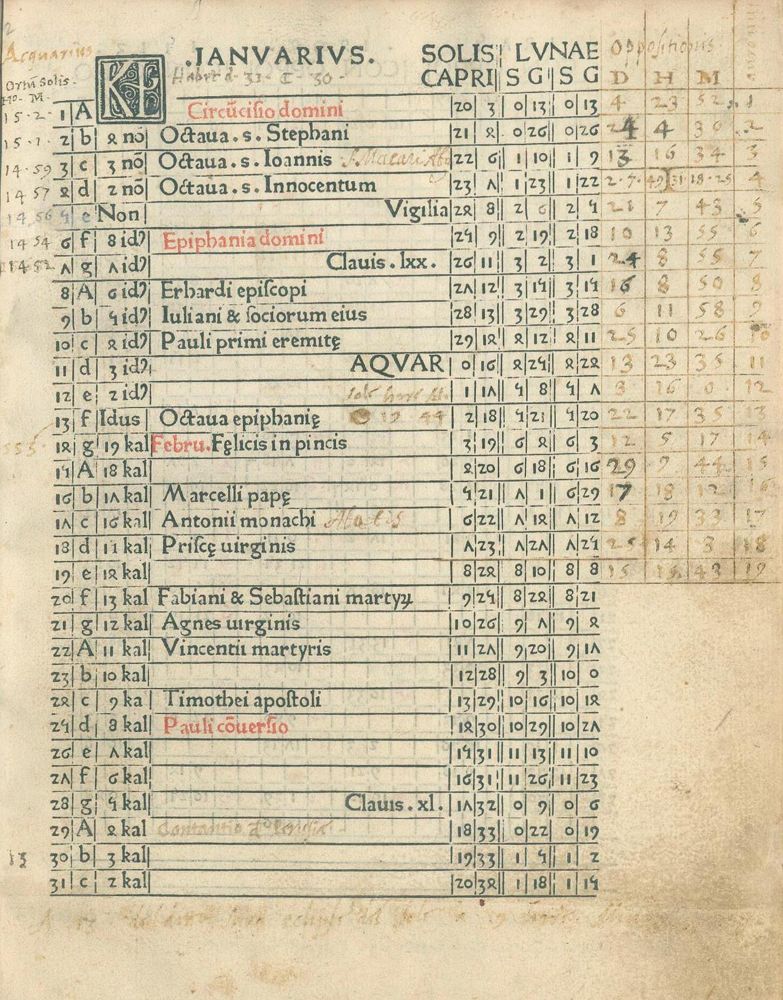 Acquarius
.IANVARIVS. SOLIS LVNAE Oppositionis
Ortus Solis Habet d. 31 CAPRI S G S G D H M
Ho. M.
15 - 2 - 1 A Circūcisio domini 20 3 0 13 0 13 4 23 52 1
15 - 1 2 b 4 nō Octaua . s . Stephani 21 4 0 26 0 26 24 4 36 2
14 - 59 3 c 3 nō Octaua . s . Ioannis 22 6 1 10 1 9 13 16 34 3
14 57 4 d 2 nō Octaua . s . Innocentum 23 7 1 23 1 22 4
14 56 5 e Non Vigilia 24 8 2 6 2 5 21 7 43 5
14 54 6 f 8 idꝰ Epiphania domini 25 9 2 19 2 18 10 13 55 6
14 52 7 g 7 idꝰ Clauis . lxx . 26 11 3 2 3 1 24 8 55 7
8 A 6 idꝰ Erhardi episcopi 27 12 3 15 3 15 16 8 50 8
9 b 5 idꝰ Iuliani & sociorum eius 28 13 3 29 3 28 6 11 58 9
10 c 4 idꝰ Pauli primi eremitę 29 14 4 12 4 11 25 10 26 10
11 d 3 idꝰ AQVAR 0 16 4 25 4 24 13 23 35 11
12 e 2 idꝰ 1 17 5 8 5 7 3 16 0 12
13 f Idus Octaua epiphanię 2 18 5 21 5 20 22 17 35 13
14 g 19 kal Febru. Fęlicis in pincis 3 19 6 4 6 3 12 5 17 14
15 A 18 kal 4 20 6 18 6 16 29 9 44 15
16 b 17 kal Marcelli papę 5 21 7 1 6 29 17 18 12 16
17 c 16 kal Antonii monachi Abatis 6 22 7 14 7 12 8 19 33 17
18 d 15 kal Priscę uirginis 7 23 7 27 7 25 25 14 3 18
19 e 14 kal 8 24 8 10 8 8 15 15 43 19
20 f 13 kal Fabiani & Sebastiani martyꝝ 9 25 8 24 8 21
21 g 12 kal Agnes uirginis 10 26 9 7 9 4
22 A 11 kal Vincentii martyris 11 27 9 20 9 17
23 b 10 kal 12 28 9 3 10 0
24 c 9 ka Timothei apostoli 13 29 10 16 10 14
25 d 8 kal Pauli cōuersio 14 30 10 29 10 27
26 e 7 kal 15 31 11 13 11 10
27 f 6 kal 16 31 11 26 11 23
28 g 5 kal Clauis . xl . 17 32 0 9 0 6
29 A 4 kal 18 33 0 22 0 19
13 30 b 3 kal 19 33 1 5 1 2
31 c 2 kal 20 34 1 18 1 15